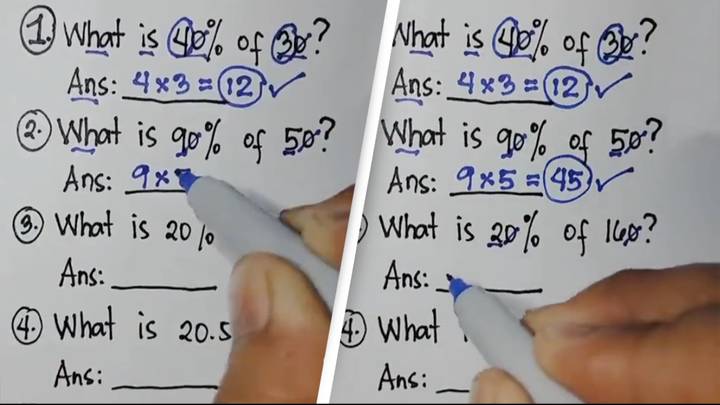 1. What is 40% of 30?
Ans: 4×3 = 12 ✓
2. What is 90% of 50?
Ans: 9×
3. What is 20%
Ans:
4. What is 20.5
Ans:
What is 40% of 30?
Ans: 4×3 = 12 ✓
What is 90% of 50?
Ans: 9×5 = 45 ✓
What is 20% of 160?
Ans:
4. What
Ans: